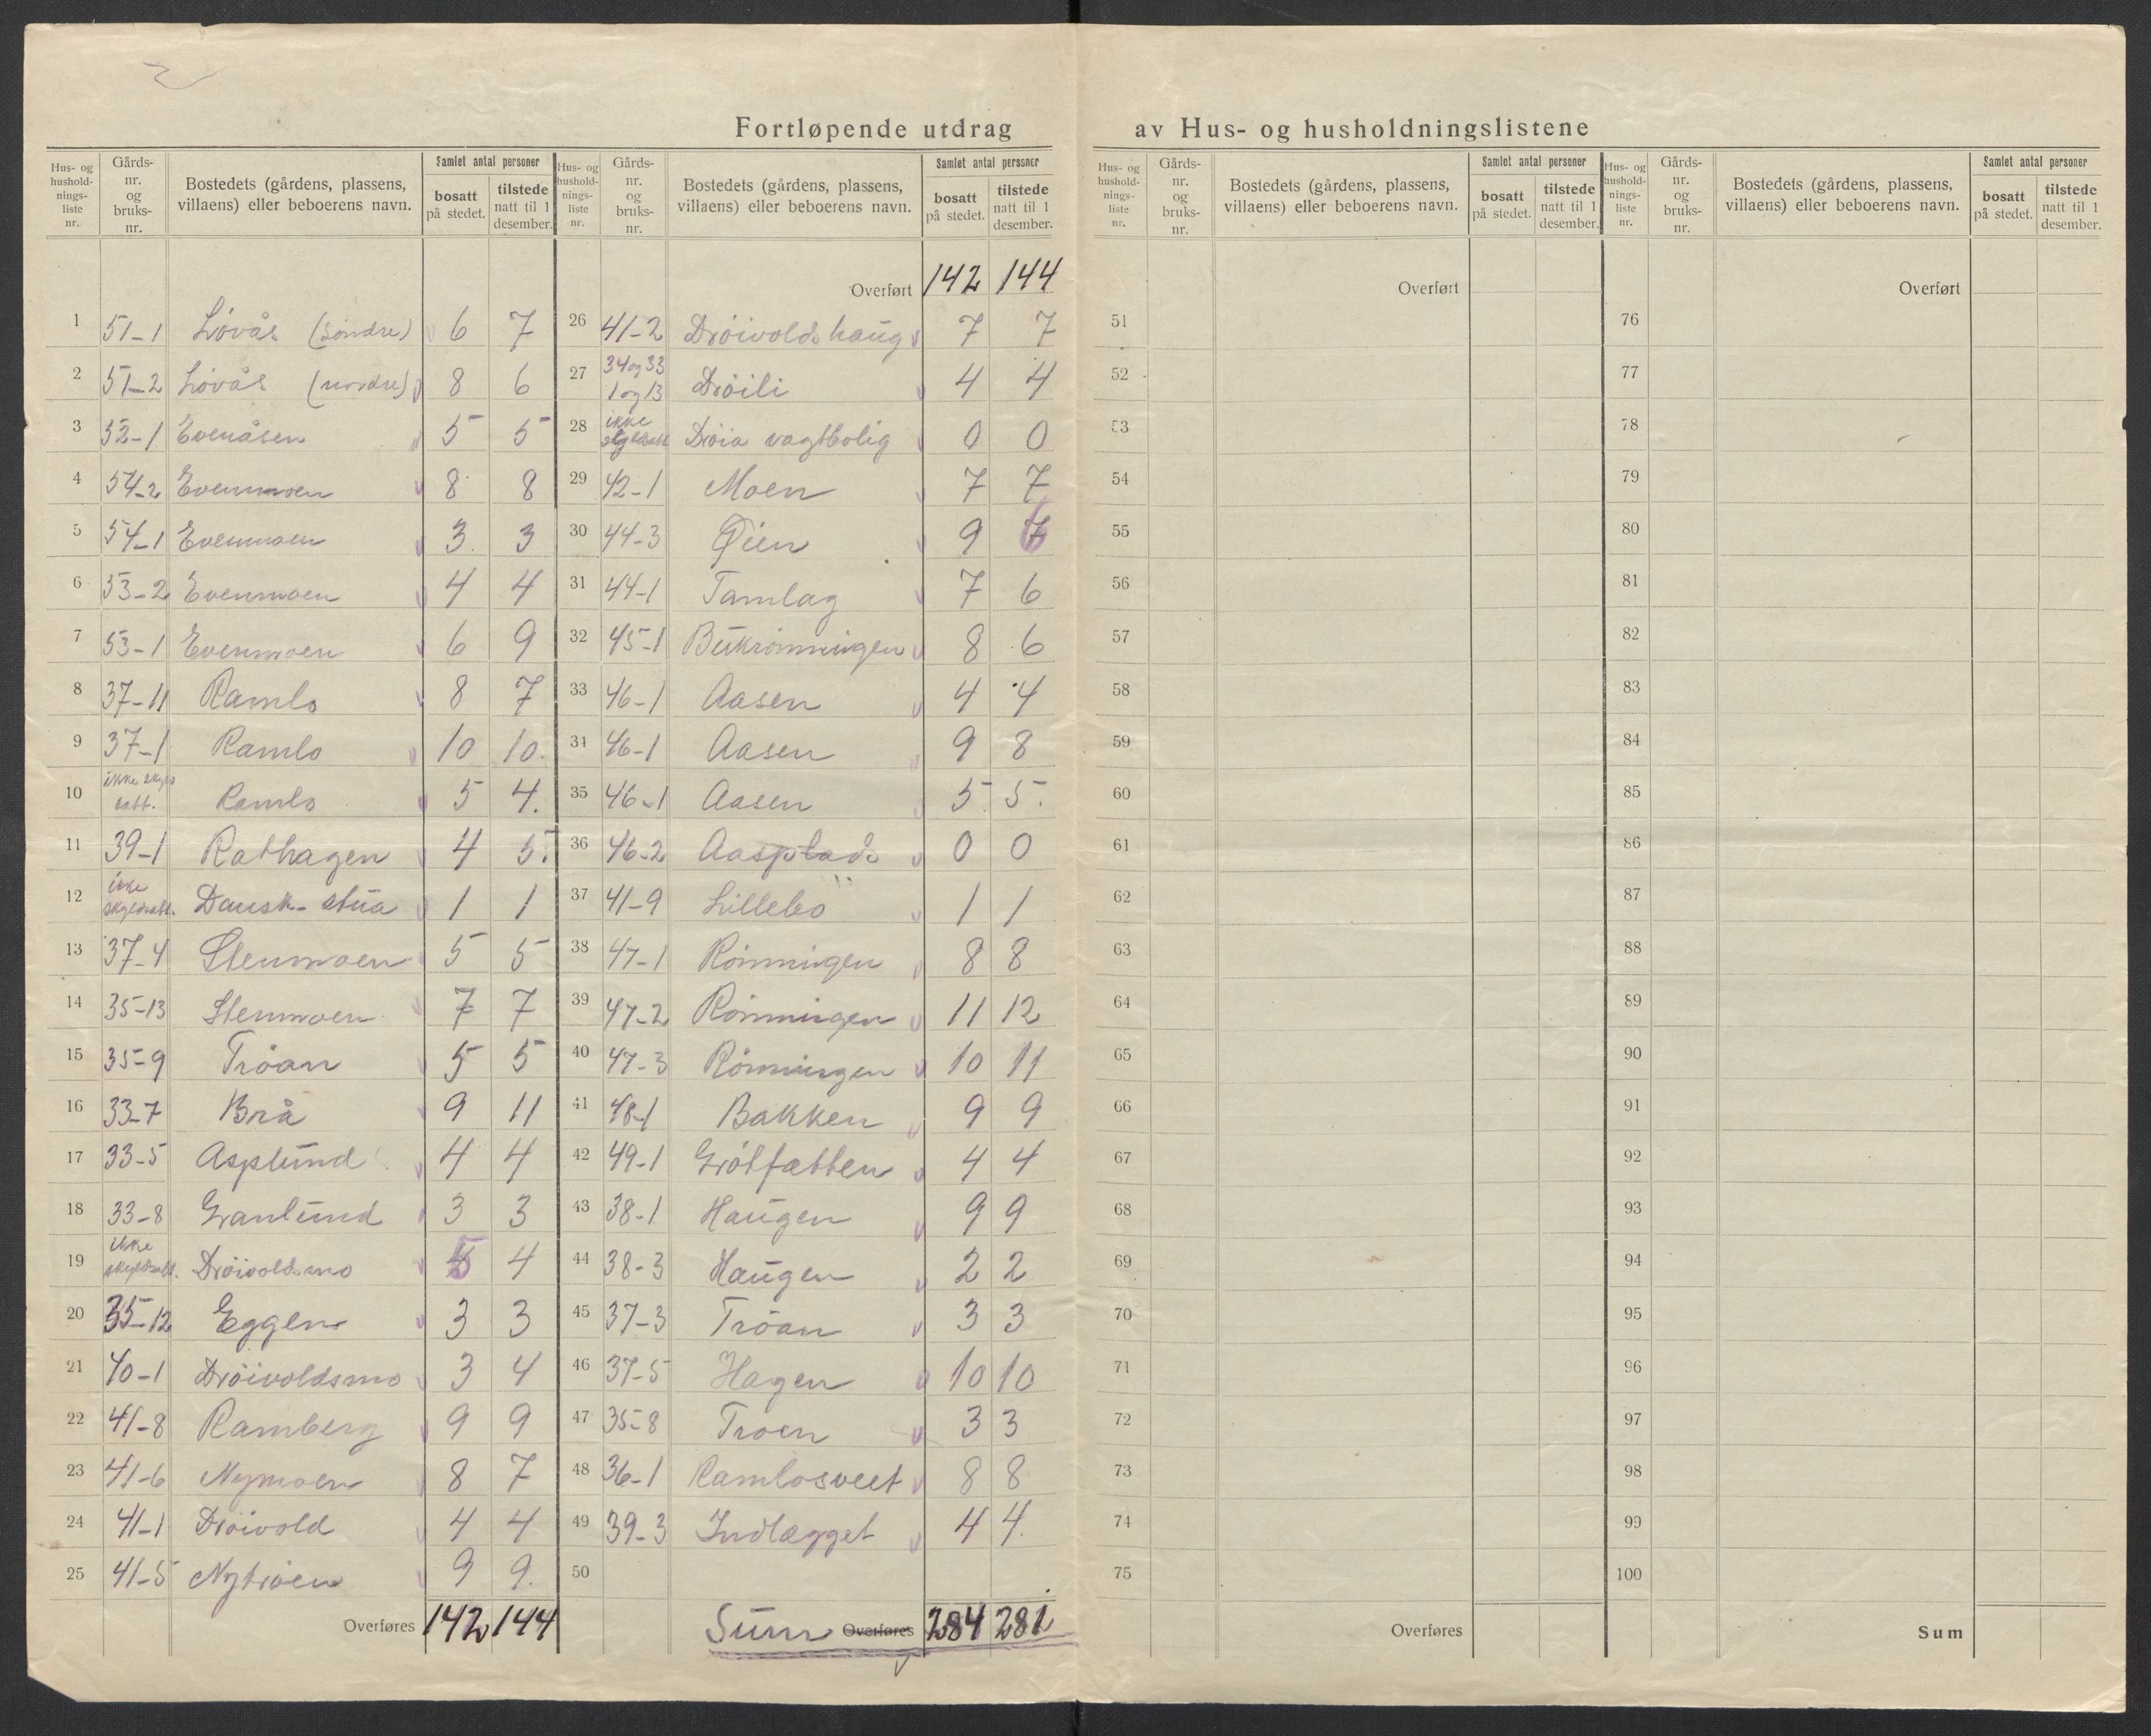 Fortløpende utdrag av Hus- og husholdningslistene
Hus- og husholdnings-liste nr. | Gårds-nr. og bruks-nr. | Bostedets (gårdens, plassens, villaens) eller beboerens navn. | Samlet antal personer | bosatt på stedet. | tilstede natt til 1 desember.
1 51-1 Lövås (söndre) 6 7
2 51-2 Lövås (nordre) 8 6
3 52-1 Evenåsen 5 5
4 54-2 Evenmoen 8 8
5 54-1 Evenmoen 3 3
6 53-2 Evenmoen 4 4
7 53-1 Evenmoen 6 9
8 37-11 Ramlo 8 7
9 37-1 Ramlo 10 10.
10 ikke skyldsatt. Ramlo 5 4.
11 39-1 Rathagen 4 5.
12 ikke skyldsatt. Dansk-stua 1 1
13 37-4 Stenmoen 5 5
14 35-13 Stenmoen 7 7
15 35-9 Tröan 5 5
16 33-7 Brå 9 11
17 33-5 Asplund 4 4
18 33-8 Granlund 3 3
19 ikke skyldsatt. Dröivoldsmo 5 4
20 35-12 Eggen 3 3
21 40-1 Dröivoldsmo 3 4
22 41-8 Ramberg 9 9
23 41-6 Nymoen 8 7
24 41-1 Dröivold 4 4
25 41-5 Nytröen 9 9.
Overføres 142 144
Hus- og husholdnings-liste nr. | Gårds-nr. og bruks-nr. | Bostedets (gårdens, plassens, villaens) eller beboerens navn. | Samlet antal personer | bosatt på stedet. | tilstede natt til 1 desember.
Overført 142 144
26 41-2 Dröivoldshaug 7 7
27 34 og 33 1 og 13 Dröili 4 4
28 ikke skyldsatt Dröia vagtbolig 0 0
29 42-1 Moen 7 7
30 44-3 Øien 9
31 44-1 Tamlag 7 6
32 45-1 Bukrönningen 8 6
33 46-1 Aasen 4 4
34 46-1 Aasen 9 8
35 46-1 Aasen 5 5.
36 46-2 Aasplads 0 0
37 41-9 Lillebö 1 1
38 47-1 Rönningen 8 8
39 47-2 Rönningen 11 12
40 47-3 Rönningen 10 11
41 48-1 Bakken 9 9
42 49-1 Grötfatten 4 4
43 38-1 Haugen 9 9
44 38-3 Haugen 2 2
45 37-3 Tröan 3 3
46 37-5 Hagen 10 10
47 35-8 Troen 3 3
48 36-1 Ramlosveet 8 8
49 39-3 Indlægget 4 4.
50
Sum Overføres 284 281
Hus- og husholdnings-liste nr. | Gårds-nr. og bruks-nr. | Bostedets (gårdens, plassens, villaens) eller beboerens navn. | Samlet antal personer | bosatt på stedet. | tilstede natt til 1 desember.
Overført
51
52
53
54
55
56
57
58
59
60
61
62
63
64
65
66
67
68
69
70
71
72
73
74
75
Overføres
Hus- og husholdnings-liste nr. | Gårds-nr. og bruks-nr. | Bostedets (gårdens, plassens, villaens) eller beboerens navn. | Samlet antal personer | bosatt på stedet. | tilstede natt til 1 desember.
Overført
76
77
78
79
80
81
82
83
84
85
86
87
88
89
90
91
92
93
94
95
96
97
98
99
100
Sum